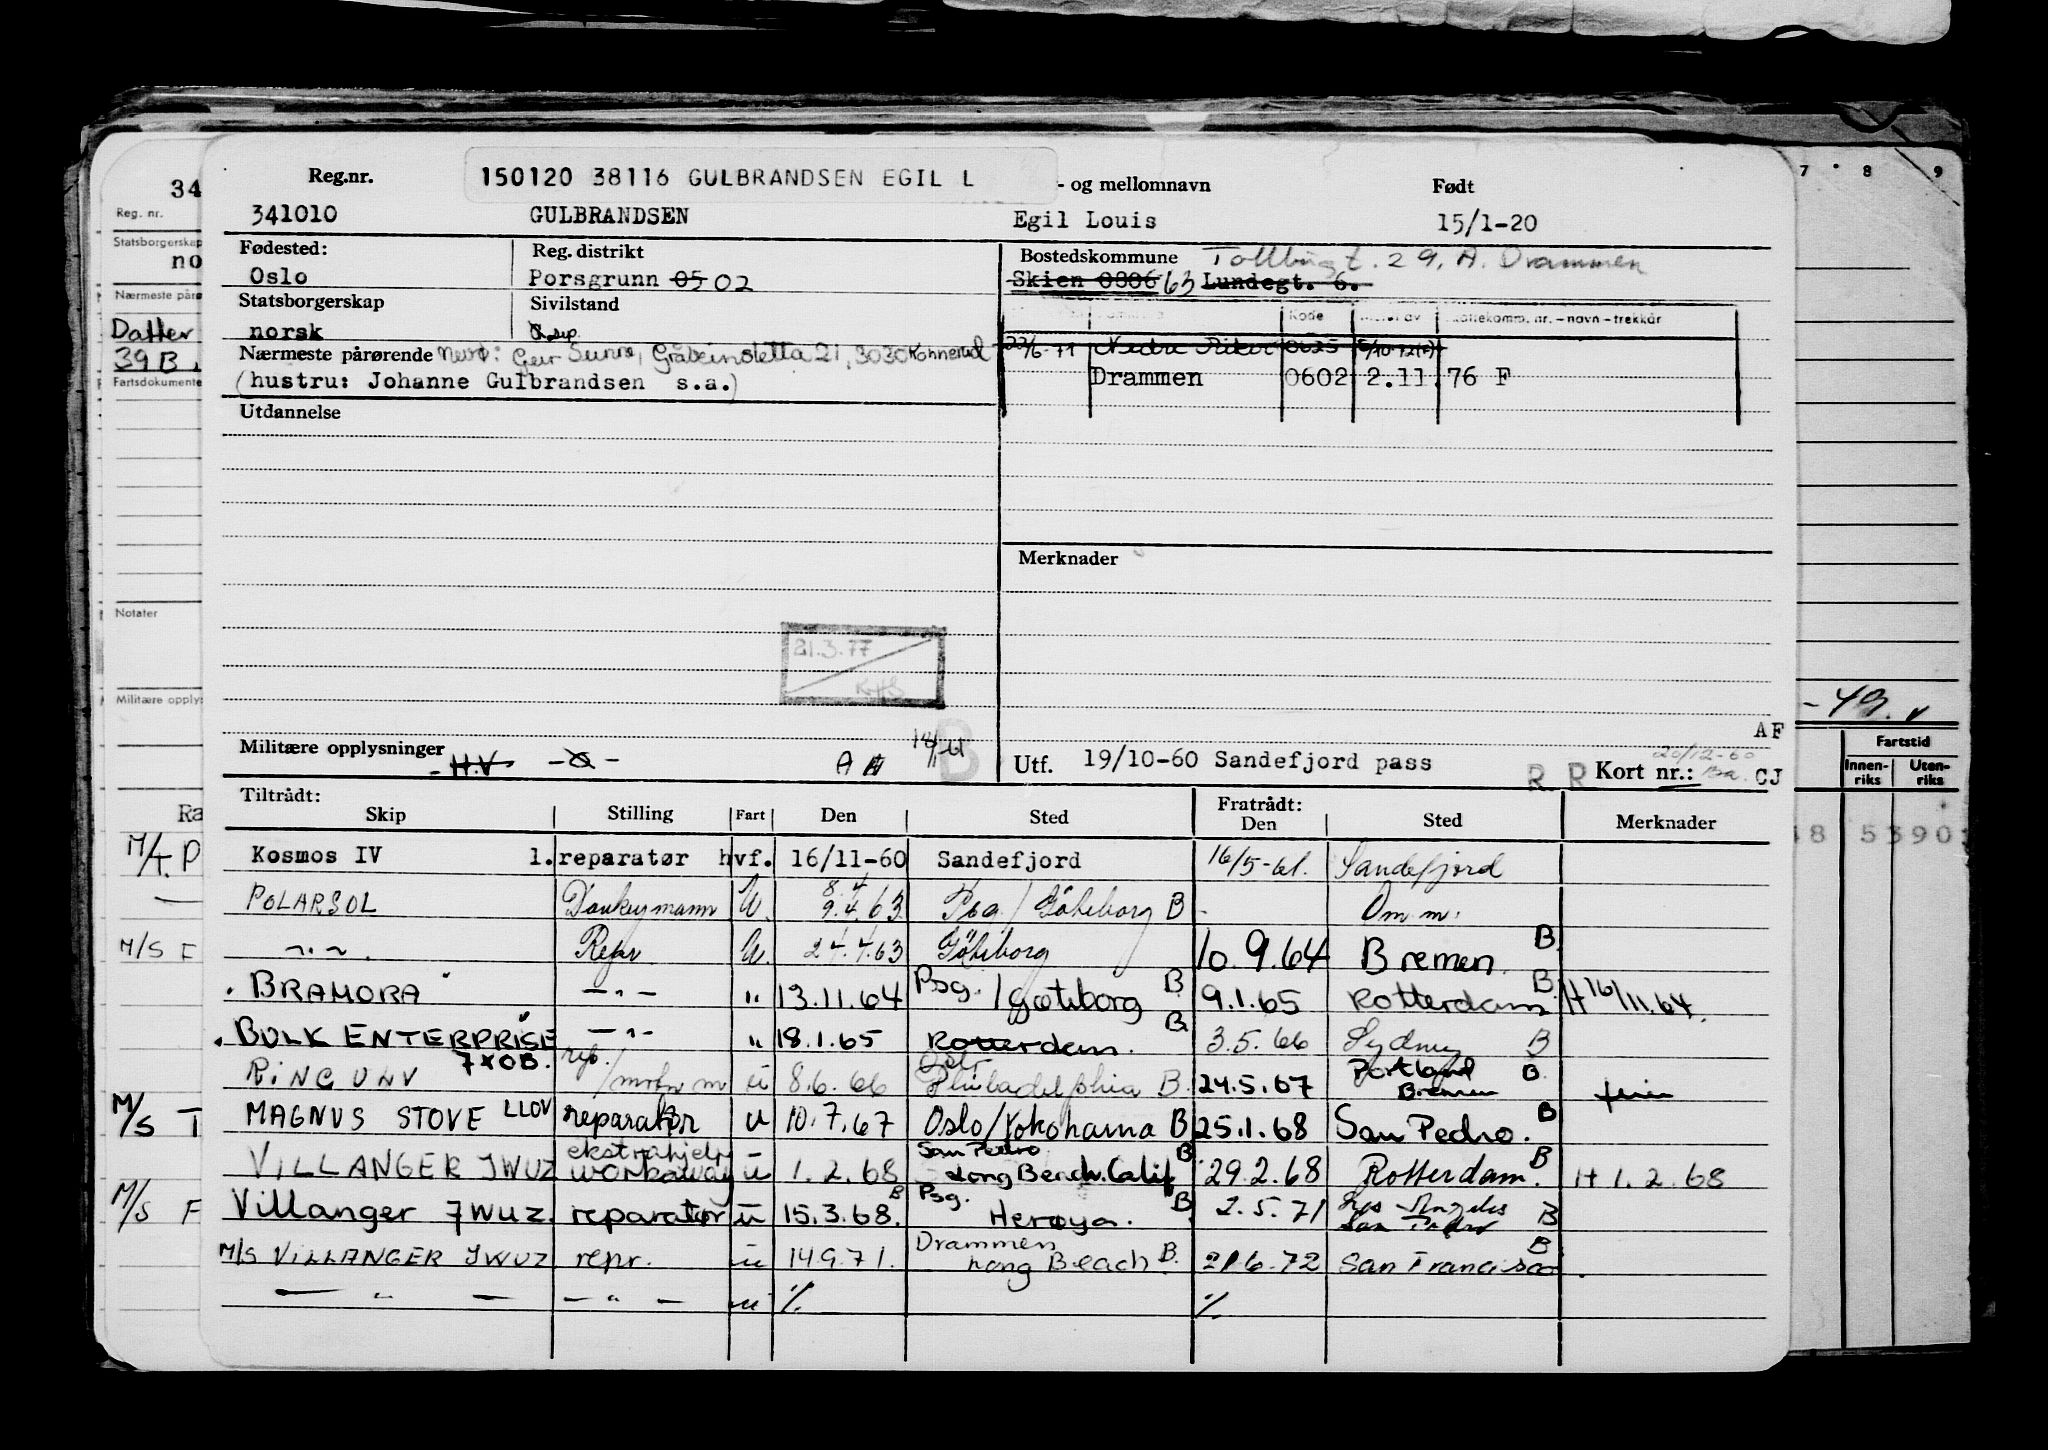 Reg.nr. 150120 38116 GULBRANDSEN EGIL L - og mellomnavn Født
341010 GULBRANDSEN Egil Louis 15/1-20
Fødested: Reg. distrikt Bostedskommune Tollbugt. 29, A. Drammen
Oslo Porsgrunn 05 02 Skien 0806 63 Lundegt. 6.
Statsborgerskap Sivilstand
norsk sep
Kode
Nærmeste pårørende 3030 Konnerud
/6-71 Nedre Eiker 0625
(hustru: Johanne Gulbrandsen s.a.) Drammen 0602 2.11.76 F
Utdannelse
Merknader
21.3.77
KHS
AF
Militære opplysninger H.V B
Utf. 19/10-60 Sandefjord pass R R Kort nr.: 20/12-60 CJ
Tiltrådt: Fratrådt:
Skip Stilling Fart Den Sted Den Sted Merknader
Kosmos IV 1.reparatør hvf. 16/11-60 Sandefjord 16/5-61. Sandefjord
POLARSOL Donkeymann U. 8.4 9.4.63 Psg./Göteborg B - Om m.
-"- Repr U. 24.4.63 Göteborg 10.9.64 Bremen. B
BRAMORA -"- " 13.11.64 Psg./Gøteborg B 9.1.65 Rotterdam B H 16/11.64.
BULK ENTERPRISE -"- " 18.1.65 Rotterdam. B 3.5.66 Sydney B
7XOB.
RINGULV rep./motor m u 8.6.66 Philadelphia B. 24.5.67 Portland Bremen B ferie
MAGNUS STOVE LLOV reparatør u 10.7.67 Oslo/Yokohama B 25.1.68 San Pedro. B
VILLANGER JWUZ ekstrahjelp workaway u 1.2.68 San Pedro Long Beach. Calif B 29.2.68 Rotterdam. B H 1.2.68
Villanger JWUZ. reparatør u 15.3.68. B Psg. Herøya. B 2.5.71 Los Angeles San Pedro B
M/S VILLANGER JWUZ repr. u 14.9.71. Drammen Long Beach B. 21.6.72 San Francisco B
— " — — " — u % %
34
Reg. nr.
Statsborgerskap
no
Nærmeste påre
Datter
39 B.
Fartsdokumente
Notater
Militære opply
Ra
M/T. P
M/S F
M/S T
M/S F
7 8 9
Fartstid
Innen-riks Uten-riks
5 3 9 0